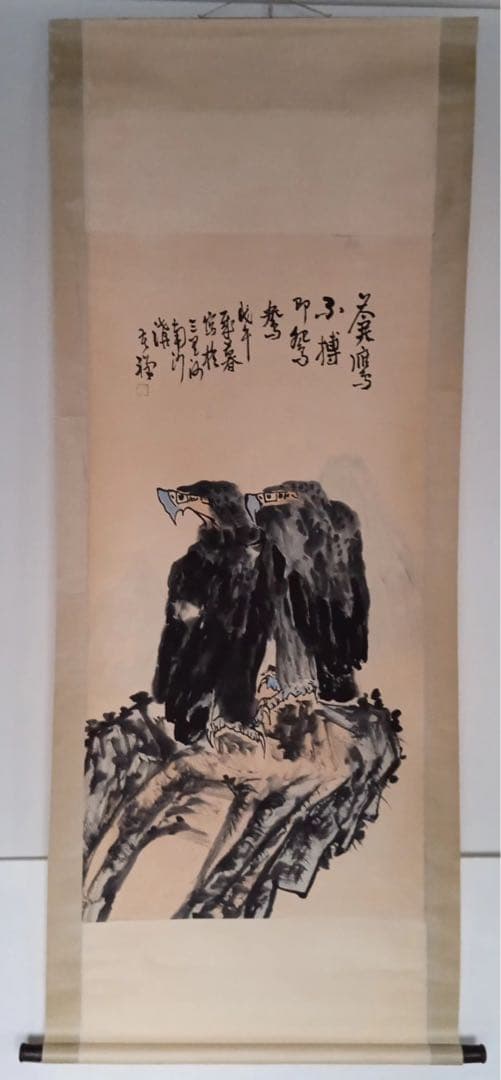 蒼鷹
不搏
即鴛
鴦
戊午
暮春
寫於
三里河
南沙
溝
苦禪